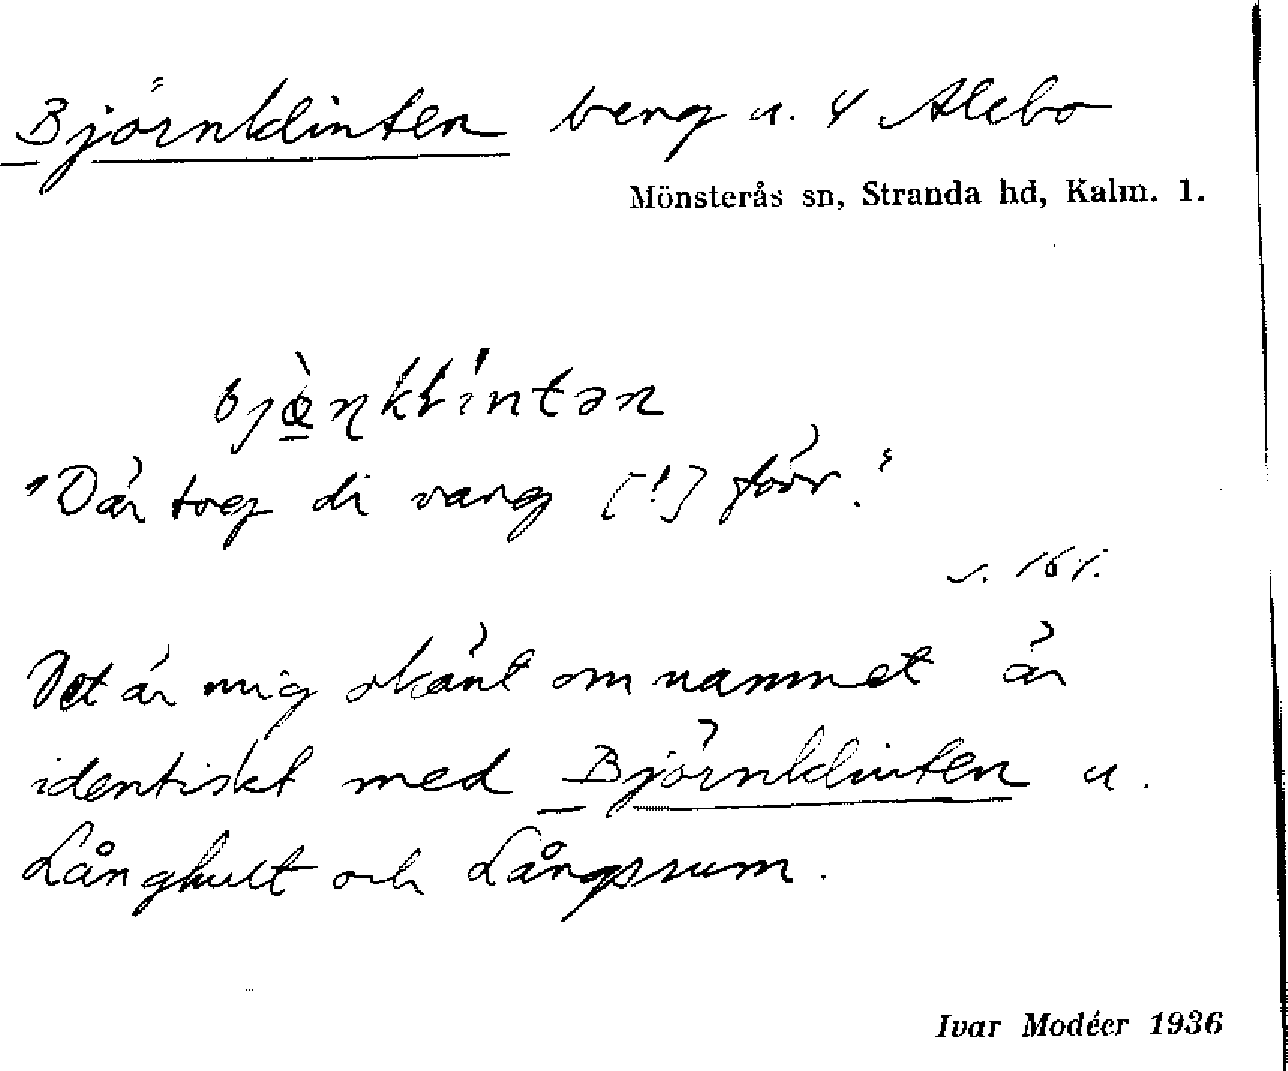 Björnklinten berg u. 4 Alebo
Mönsterås sn, Stranda hd, Kalm. l.
bjœ̀ṇklintən
"Där tog di varg [!] förr."
s. 161.
Det är mig okänt om namnet är
identiskt med Björnklinten u.
Långhult och Långsrum.
Ivar Modéer 1936